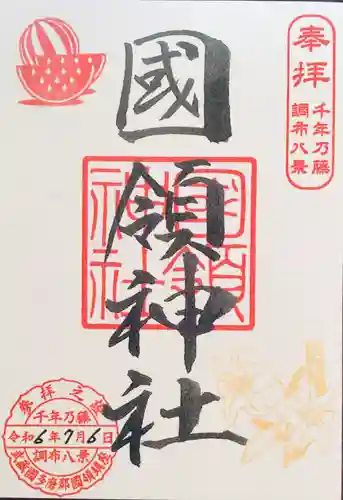 奉拝
千年乃藤
調布八景
國領神社
國領神社
参拝之記
千年乃藤
令和6年7月6日
調布八景
武蔵國多磨郡國領鎮座